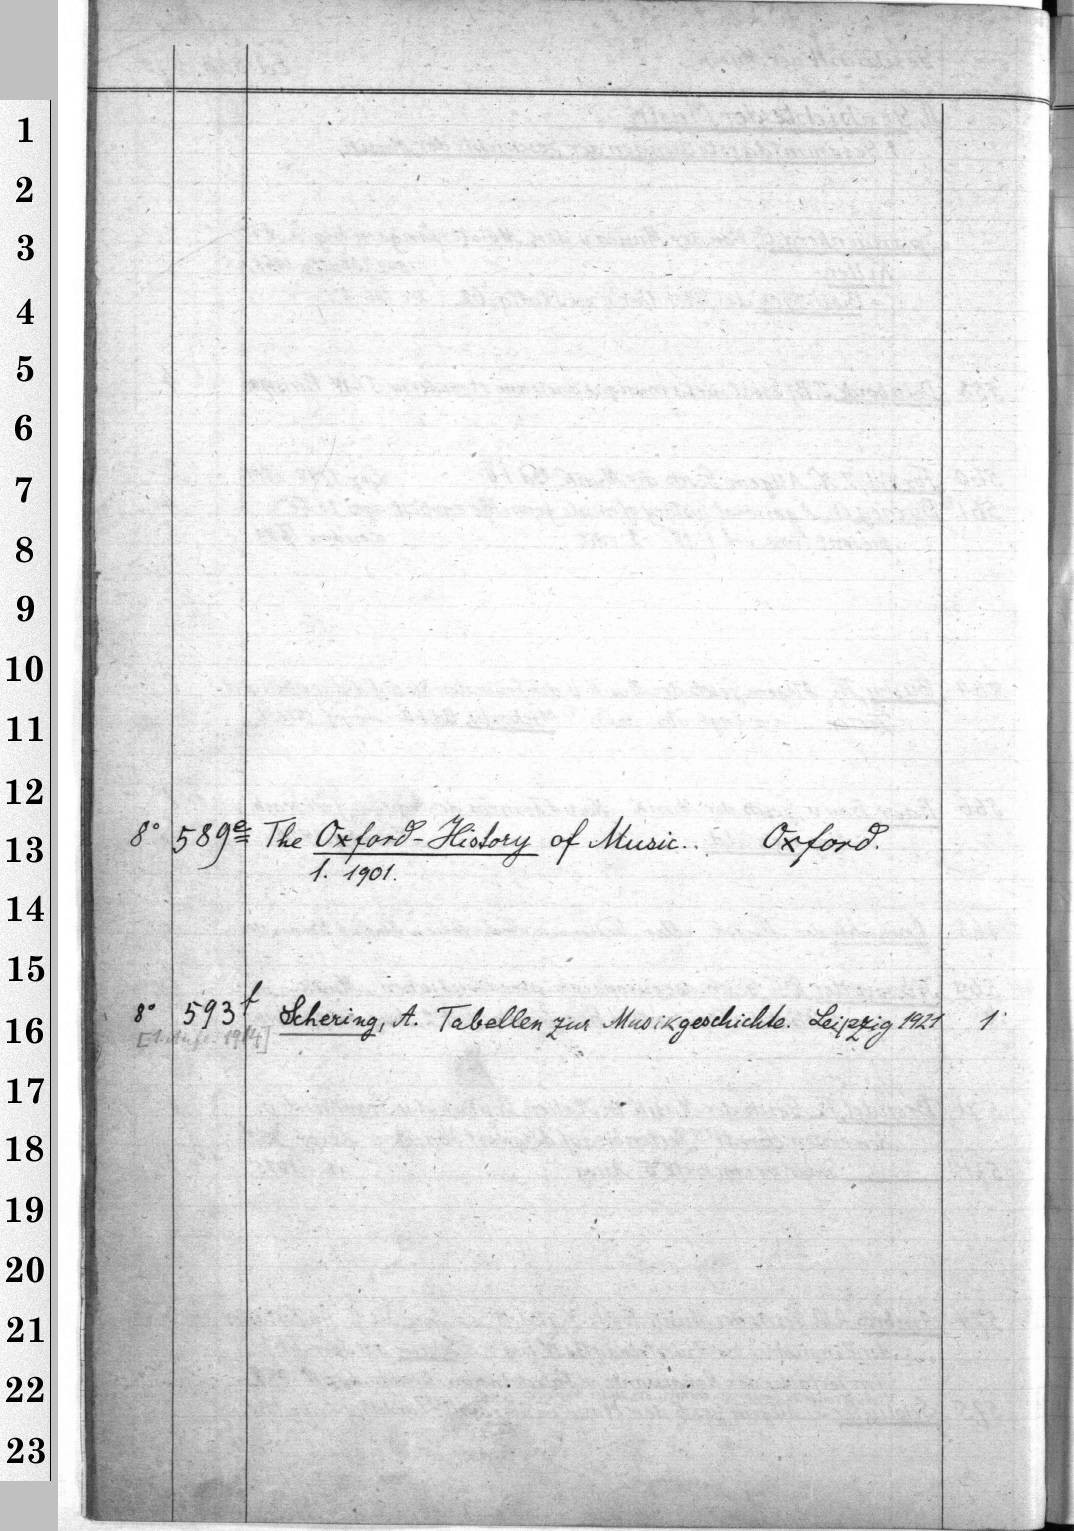 1
2
3
4
5
6
7
8
9
10
11
12
8° 589e The Oxford-History of Music.. Oxford.
13
1. 1901.
14
15
8° 593f Schering, A. Tabellen zur Musikgeschichte. Leipzig 1921 1
16
[1. Aufl. 1914]
17
18
19
20
21
22
23